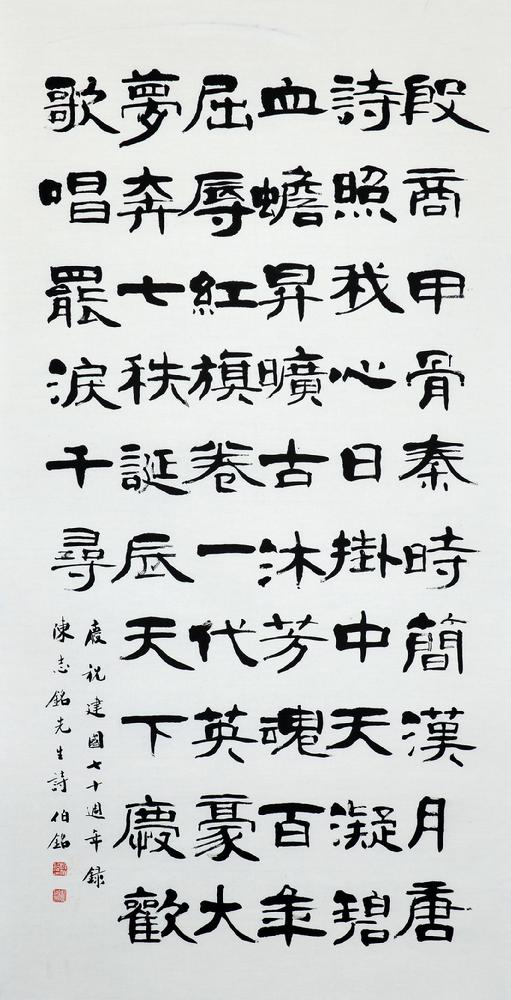 殷商甲骨秦時簡漢月唐
詩照我心日掛中天凝碧
血蟾昇曠古沐芳魂百年
屈辱紅旗卷一代英豪大
夢奔七秩誕辰天下慶歡
歌唱罷淚千尋
慶祝建國七十週年錄
陳志銘先生詩伯銘